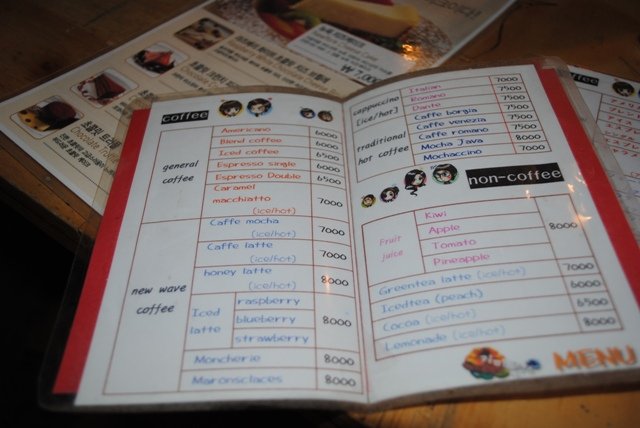 coffee
general
coffee
Americano 6000
Blend coffee 6000
Iced coffee 6500
Espresso single 6000
Espresso Double 6500
Caramel
macchiatto 7000
(ice/hot)
new wave
coffee
Caffe mocha 7000
(ice/hot)
Caffe latte 7000
(ice/hot)
honey latte 8000
(ice/hot)
Iced
latte
raspberry
blueberry 8000
strawberry
Moncherie 8000
Maronsclaces 8000
cappuccino
[ice/hot]
Italian 7000
Romano 7500
Dante 7500
traditional
hot coffee
Caffe borgia 7500
Caffe venezia 7500
Caffe romano 7500
Mocha Java 8000
Mochaccino 7000
non-coffee
Fruit
juice
Kiwi
Apple 8000
Tomato
Pineapple
Greentea latte (ice/hot) 7000
Icedtea (peach) 6000
Cocoa (ice/hot) 6500
Lemonade (ice/hot) 8000
MENU
₩7,000